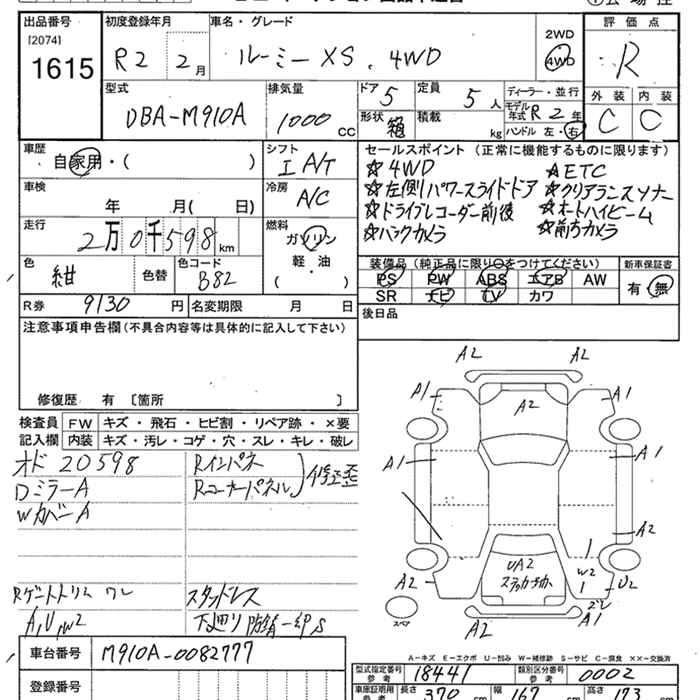 出品番号 初度登録年月 車名・グレード 評価点
[2074]
1615 R2 2月 ルーミー XS . 4WD 2WD 4WD R
型式 排気量 ドア 定員 ディーラー・並行 外装 内装
DBA-M910A 1000 CC 5 5人 モデル年式 R2年 C C
形状 箱 積載 kg ハンドル 左・右
車歴 自家用・( ) シフト I A/T
セールスポイント (正常に機能するものに限ります)
☆4WD ☆ETC
☆左側パワースライドドア ☆クリアランスソナー
☆ドライブレコーダー前後 ☆オートハイビーム
☆バックカメラ ☆前方カメラ
車検 年 月( 日) 冷房 A/C
走行 2万0千598km 燃料 ガソリン 軽・油 ( )
色 紺 色替 色コード B82
装備品 (純正品に限り○をつけてください) 新車保証書
PS PW ABS エアB AW 有・無
SR ナビ TV カワ
R券 9130円 名変期限 月 日
後日品
注意事項申告欄(不具合内容等は具体的に記入して下さい)
修復歴 有 [箇所 ]
検査員 FW キズ・飛石・ヒビ割・リペア跡・×要
記入欄 内装 キズ・汚レ・コゲ・穴・スレ・キレ・破レ
オド 20598 Rインパネ
DミラーA Rコーナーパネル 修正歪
WカバーA
Rゲートトリム ワレ スタッドレス
A,U,W2 下廻り防錆一部S
A2 A2
A1 A2 A1
A1 A1
A2
UA2 W2
A2 U2
スペア ズレ
A2 A2
A-キズ E-エクボ U-凹み W-補修跡 S-サビ C-腐食 XX-交換済
車台番号 M910A-0082777
型式指定番号 参考 18441 類別区分番号 参考 0002
登録番号
車庫証明用 参考 長さ 370 cm 幅 167 cm 高さ 173 cm